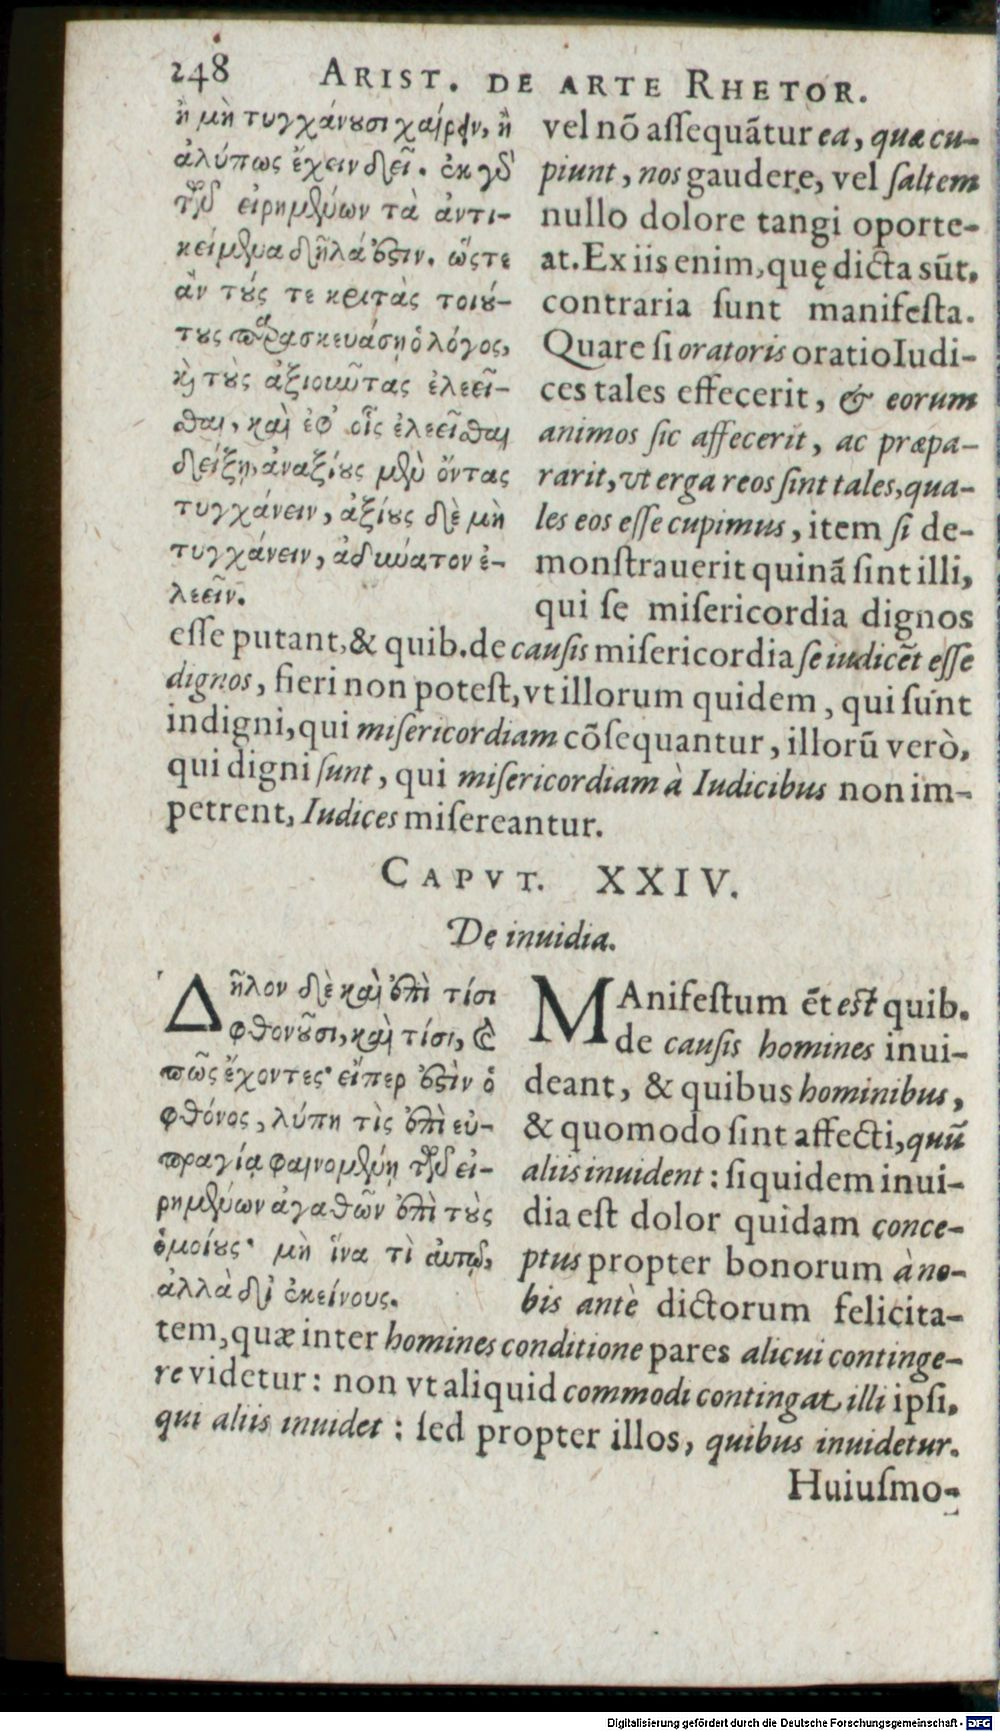 248 ARIST. DE ARTE RHETOR.
ἢ μὴ τυγχάνουσι χαίρειν, ἢ
ἀλύπως ἔχειν δεῖ. ἐκ γδ
τῶν εἰρημένων τὰ ἀντι-
κείμενα δῆλά ἐστιν. ὥςτε
ἂν τούς τε κριτὰς τοιού-
τους παρασκευάσῃ ὁ λόγος,
καὶ τοὺς ἀξιοῦντας ἐλεεῖ-
σθαι, καὶ ἐφ' οἷς ἐλεεῖσθαι
δείξῃ, ἀναξίους μὲν ὄντας
τυγχάνειν, ἀξίους δὲ μὴ
τυγχάνειν, ἀδύνατον ἐ-
λεεῖν.
vel nō aſſequātur ea, quæ cu-
piunt, nos gaudere, vel ſaltem
nullo dolore tangi oporte-
at. Ex iis enim, quę dicta sūt,
contraria ſunt manifeſta.
Quare ſi oratoris oratio Iudi-
ces tales effecerit, & eorum
animos ſic affecerit, ac præpa-
rarit, vt erga reos ſint tales, qua-
les eos eſſe cupimus, item ſi de-
monſtrauerit quinā ſint illi,
qui ſe miſericordia dignos
eſſe putant, & quib. de cauſis miſericordia ſe iudicēt eſſe
dignos, fieri non poteſt, vt illorum quidem, qui ſunt
indigni, qui miſericordiam cōſequantur, illorū verò,
qui digni ſunt, qui miſericordiam à Iudicibus non im-
petrent, Iudices miſereantur.
CAPVT. XXIV.
De inuidia.
Δῆλον δὲ καὶ ἐπὶ τίσι
φθονοῦσι, καὶ τίσι, καὶ
πῶς ἔχοντες· εἴπερ ἐστὶν ὁ
φθόνος, λύπη τὶς ἐπὶ εὐ-
πραγίᾳ φαινομένῃ τῶν εἰ-
ρημένων ἀγαθῶν ἐπὶ τοὺς
ὁμοίους· μὴ ἵνα τὶ αὐτῷ,
ἀλλὰ δι' ἐκείνους.
MAnifeſtum ēt eſt quib.
de cauſis homines inui-
deant, & quibus hominibus,
& quomodo ſint affecti, quū
aliis inuident: ſiquidem inui-
dia eſt dolor quidam conce-
ptus propter bonorum à no-
bis antè dictorum felicita-
tem, quæ inter homines conditione pares alicui continge-
re videtur: non vt aliquid commodi contingat illi ipſi,
qui aliis inuidet: ſed propter illos, quibus inuidetur.
Huiuſmo-
Digitalisierung gefördert durch die Deutsche Forschungsgemeinschaft - DFG